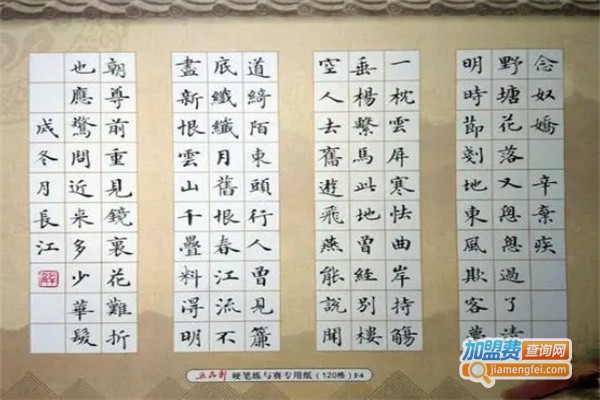 念奴嬌 辛棄疾
野塘花落又怱怱過了清
明時節剗地東風欺客夢
一枕雲屏寒怯曲岸持觴
垂楊繫馬此地曾經別樓
空人去舊遊飛燕能說聞
道綺陌東頭行人曾見簾
底纖纖月舊恨春江流不
盡新恨雲山千疊料得明
朝尊前重見鏡裏花難折
也應驚問近來多少華髮
成冬月長江
硬笔练与赛专用纸（120格）F4
加盟费查询网
jiamengfei.com